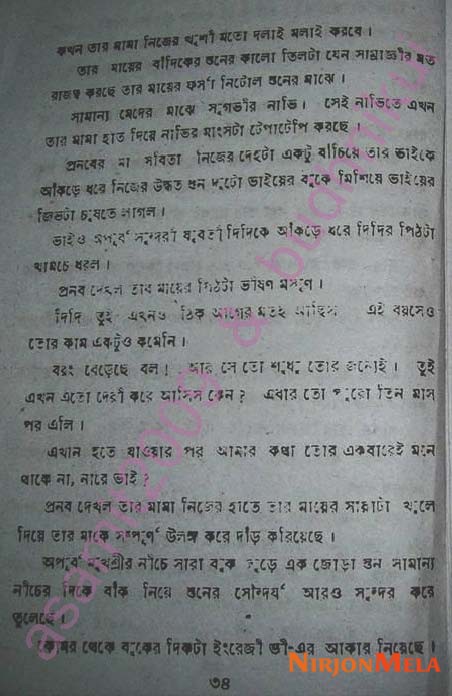 কখন তার মামা নিজের খুশী মতো দলাই মলাই করবে ।
তার মায়ের বাঁদিকের স্তনের কালো তিলটা যেন সাম্রাজ্ঞীর মত
রাজত্ব করছে তার মায়ের ফর্সা নিটোল স্তনের মাঝে ।
সামান্য মেদের মাঝে সুগভীর নাভি । সেই নাভিতে এখন
তার মামা হাত দিয়ে নাভির মাংসটা টেপাটেপি করছে ।
প্রনবের মা সবিতা নিজের দেহটা একটু বাঁচিয়ে তার ভাইকে
আঁকড়ে ধরে নিজের উদ্ধত স্তন দুটো ভাইয়ের বুকে মিশিয়ে ভাইয়ের
জিভটা চুষতে লাগল ।
ভাইও অপূর্ব সুন্দরী যুবতী দিদিকে আঁকড়ে ধরে দিদির পিঠটা
খামচে ধরল ।
প্রনব দেখল তার মায়ের পিঠটা ভীষণ মসৃণ ।
দিদি তুই এখনও ঠিক আগের মতই আছিস এই বয়সেও
তোর কাম একটুও কমেনি ।
বরং বেড়েছে বল ! আর সে তো শুধু তোর জন্যেই । তুই
এখন এতো দেরী করে আসিস কেন ? এবার তো পুরো তিন মাস
পর এলি ।
এখান হতে যাওয়ার পর আমার কথা তোর একবারেই মনে
থাকে না, নারে ভাই ?
প্রনব দেখল তার মামা নিজের হাতে তার মায়ের সায়াটা খুলে
দিয়ে তার মাকে সম্পূর্ণ উলঙ্গ করে দাঁড় করিয়েছে ।
অপূর্ব মুখশ্রীর নীচে সারা বুক জুড়ে এক জোড়া স্তন সামান্য
নীচের দিকে বাঁক নিয়ে স্তনের সৌন্দর্য আরও সুন্দর করে
তুলেছে ।
কোমর থেকে বুকের দিকটা ইংরেজী ভী-এর আকার নিয়েছে ।
৩৪
NIRJONMELA